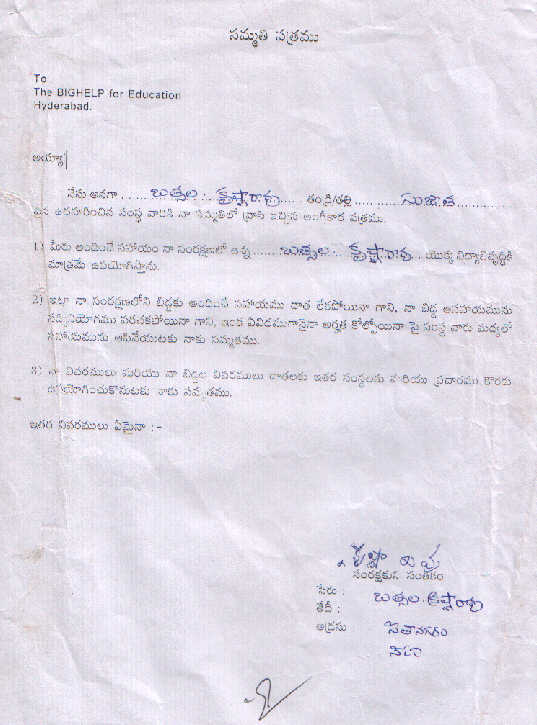 సమ్మతి పత్రము
To
The BIGHELP for Education
Hyderabad.
అయ్యా!
నేను అనగా ...... బత్సల . కృష్ణారావు ..... తండ్రి/తల్లి ........... సుజాత ...........
పైన ఉదహరించిన సంస్థ వారికి నా సమ్మతితో వ్రాసి ఇచ్చిన అంగీకార పత్రము.
1) మీరు అందించే సహాయం నా సంరక్షణలో ఉన్న ...... బత్సల . కృష్ణారావు ... యొక్క విద్యాభివృద్ధికి
మాత్రమే ఉపయోగిస్తాను.
2) ఇట్లా నా సంరక్షణలోని బిడ్డకు అందించే సహాయము దాత లేకపోయినా గాని, నా బిడ్డ ఆసహాయమును
సద్వినియోగము పరచకపోయినా గాని, ఇంకా ఏవిధముగానైనా అర్హత కోల్పోయినా పై సంస్థ వారు మధ్యలో
సహాయమును ఆపివేయుటకు నాకు సమ్మతము.
3) నా వివరములు మరియు నా బిడ్డల వివరములు దాతలకు ఇతర సంస్థలకు మరియు ప్రచారము కొరకు
ఉపయోగించుకొనుటకు నాకు సమ్మతము.
ఇతర వివరములు ఏమైనా : -
కృష్ణా రావు
సంరక్షకుని సంతకం
పేరు : బత్సల కృష్ణారావు
తేదీ :
అడ్రసు సీతానగరం